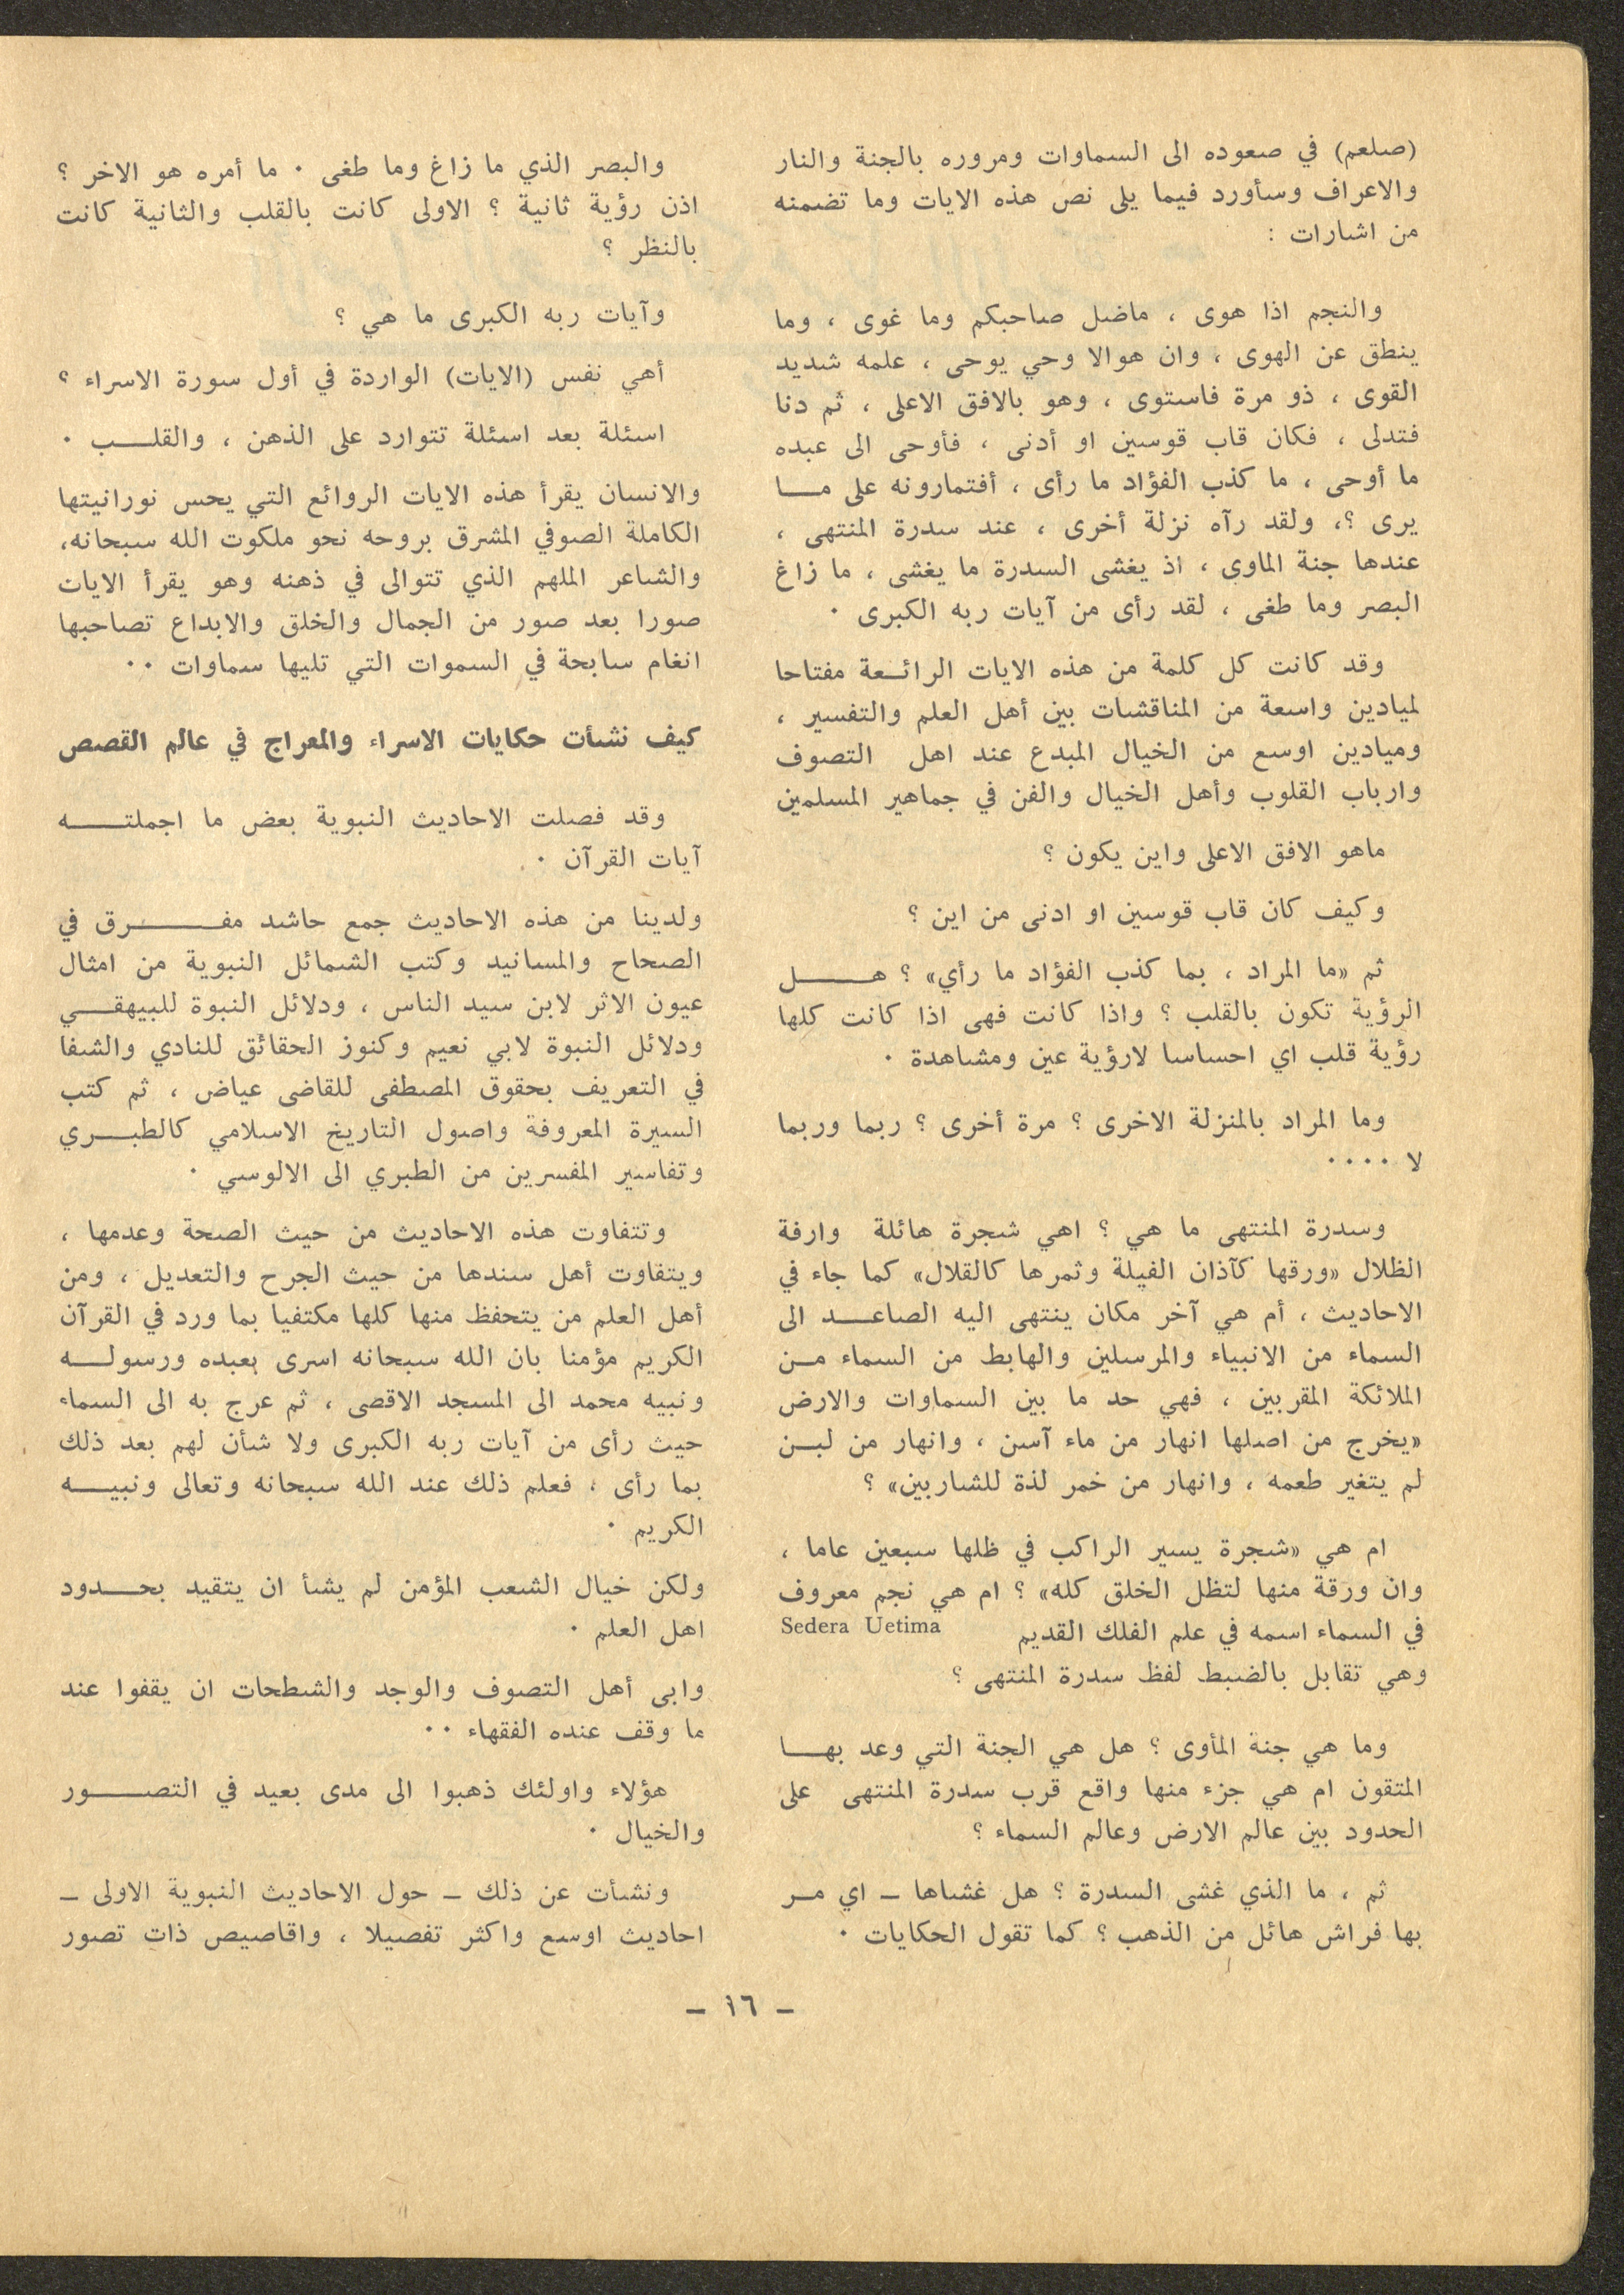 (صلعم) في صعوده الى السماوات ومروره بالجنة والنار
والاعراف وسأورد فيما يلى نص هذه الايات وما تضمنه
من اشارات :
والنجم اذا هوى ، ماضل صاحبكم وما غوى ، وما
ينطق عن الهوى ، وان هوالا وحي يوحى ، علمه شديد
القوى ، ذو مرة فاستوى ، وهو بالافق الاعلى ، ثم دنا
فتدلى ، فكان قاب قوسين او أدنى ، فأوحى الى عبده
ما أوحى ، ما كذب الفؤاد ما رأى ، أفتمارونه على مـــا
يرى ؟، ولقد رآه نزلة أخرى ، عند سدرة المنتهى ،
عندها جنة الماوى ، اذ يغشى السدرة ما يغشى ، ما زاغ
البصر وما طغى ، لقد رأى من آيات ربه الكبرى ·
وقد كانت كل كلمة من هذه الايات الرائـعة مفتاحا
لميادين واسعة من المناقشات بين أهل العلم والتفسير ،
وميادين اوسع من الخيال المبدع عند اهل التصوف
وارباب القلوب وأهل الخيال والفن في جماهير المسلمين
ماهو الافق الاعلى واين يكون ؟
وكيف كان قاب قوسين او ادنى من اين ؟
ثم «ما المراد ، بما كذب الفؤاد ما رأي» ؟ هــــــل
الرؤية تكون بالقلب ؟ واذا كانت فهى اذا كانت كلها
رؤية قلب اي احساسا لارؤية عين ومشاهدة ·
وما المراد بالمنزلة الاخرى ؟ مرة أخرى ؟ ربما وربما
لا ····
وسدرة المنتهى ما هي ؟ اهي شجرة هائلة وارفة
الظلال «ورقها كآذان الفيلة وثمرها كالقلال» كما جاء في
الاحاديث ، أم هي آخر مكان ينتهى اليه الصاعــــد الى
السماء من الانبياء والمرسلين والهابط من السماء مــن
الملائكة المقربين ، فهي حد ما بين السماوات والارض
«يخرج من اصلها انهار من ماء آسن ، وانهار من لبــن
لم يتغير طعمه ، وانهار من خمر لذة للشاربين» ؟
ام هي «شجرة يسير الراكب في ظلها سبعين عاما ،
وان ورقة منها لتظل الخلق كله» ؟ ام هي نجم معروف
في السماء اسمه في علم الفلك القديم Sedera Uetima
وهي تقابل بالضبط لفظ سدرة المنتهى ؟
وما هي جنة المأوى ؟ هل هي الجنة التي وعد بهــــا
المتقون ام هي جزء منها واقع قرب سدرة المنتهى على
الحدود بين عالم الارض وعالم السماء ؟
ثم ، ما الذي غشى السدرة ؟ هل غشاها ــ اي مــر
بها فراش هائل من الذهب ؟ كما تقول الحكايات ·
والبصر الذي ما زاغ وما طغى · ما أمره هو الاخر ؟
اذن رؤية ثانية ؟ الاولى كانت بالقلب والثانية كانت
بالنظر ؟
وآيات ربه الكبرى ما هي ؟
أهي نفس (الايات) الواردة في أول سورة الاسراء ؟
اسئلة بعد اسئلة تتوارد على الذهن ، والقلــــب ·
والانسان يقرأ هذه الايات الروائع التي يحس نورانيتها
الكاملة الصوفي المشرق بروحه نحو ملكوت الله سبحانه،
والشاعر الملهم الذي تتوالى في ذهنه وهو يقرأ الايات
صورا بعد صور من الجمال والخلق والابداع تصاحبها
انغام سابحة في السموات التي تليها سماوات ··
كيف نشأت حكايات الاسراء والمعراج في عالم القصص
وقد فصلت الاحاديث النبوية بعض ما اجملتــــــه
آيات القرآن ·
ولدينا من هذه الاحاديث جمع حاشد مفــــــــرق في
الصحاح والمسانيد وكتب الشمائل النبوية من امثال
عيون الاثر لابن سيد الناس ، ودلائل النبوة للبيهقــــي
ودلائل النبوة لابي نعيم وكنوز الحقائق للنادي والشفا
في التعريف بحقوق المصطفى للقاضى عياض ، ثم كتب
السيرة المعروفة واصول التاريخ الاسلامي كالطبــــري
وتفاسير المفسرين من الطبري الى الالوسي ·
وتتفاوت هذه الاحاديث من حيث الصحة وعدمها ،
ويتفاوت أهل سندها من حيث الجرح والتعديل ، ومن
أهل العلم من يتحفظ منها كلها مكتفيا بما ورد في القرآن
الكريم مؤمنا بان الله سبحانه اسرى بعبده ورسولــــه
ونبيه محمد الى المسجد الاقصى ، ثم عرج به الى السماء
حيث رأى من آيات ربه الكبرى ولا شأن لهم بعد ذلك
بما رأى ، فعلم ذلك عند الله سبحانه وتعالى ونبيــــه
الكريم ·
ولكن خيال الشعب المؤمن لم يشأ ان يتقيد بحــــدود
اهل العلم ·
وابى أهل التصوف والوجد والشطحات ان يقفوا عند
ما وقف عنده الفقهاء ··
هؤلاء واولئك ذهبوا الى مدى بعيد في التصـــــور
والخيال ·
ونشأت عن ذلك ــ حول الاحاديث النبوية الاولى ــ
احاديث اوسع واكثر تفصيلا ، واقاصيص ذات تصور
ــ ١٦ ــ